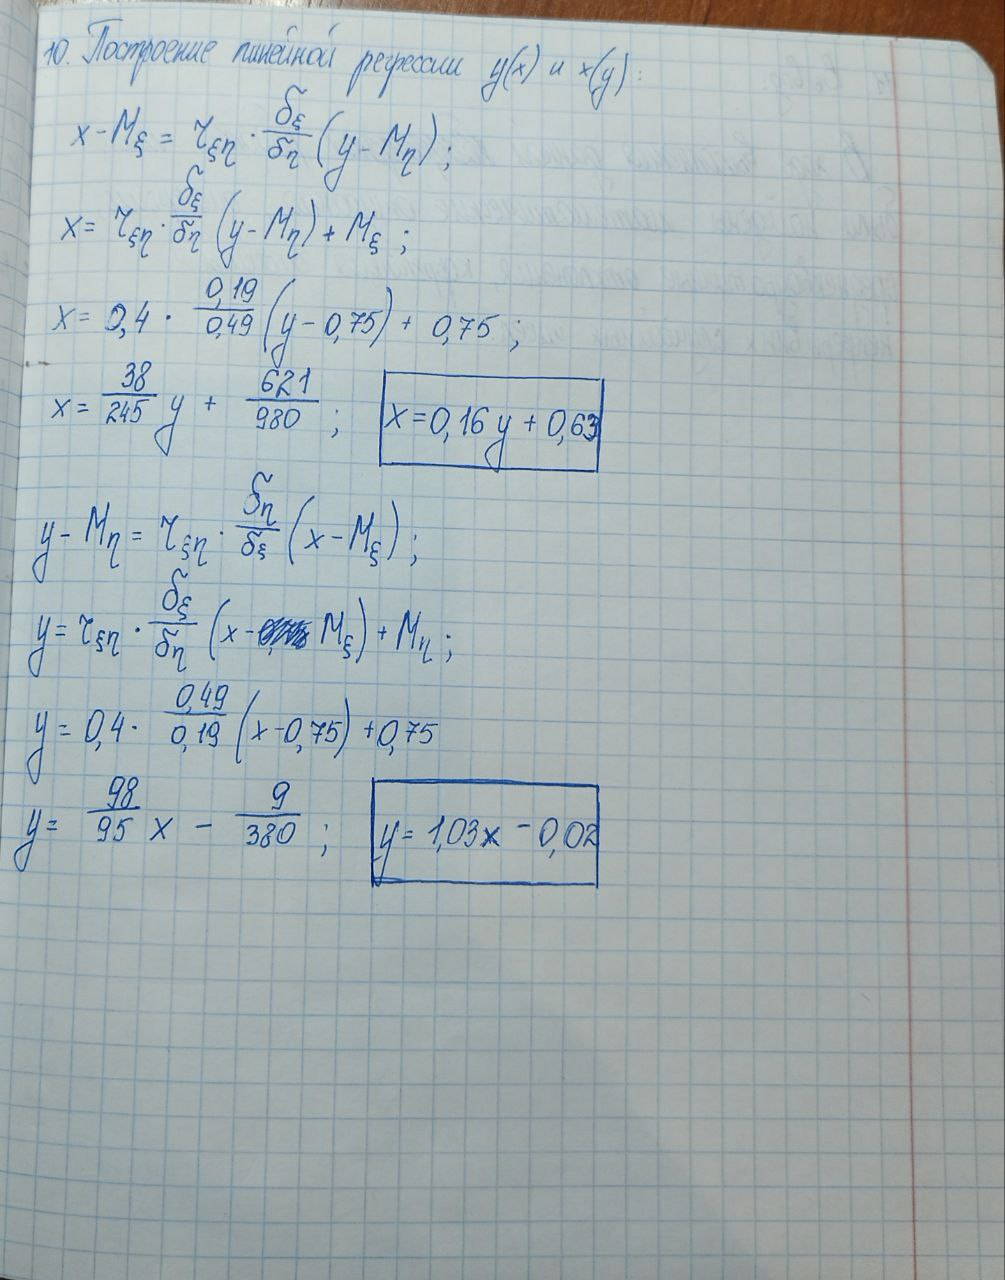 10. Построение линейной регрессии y(x) и x(y):
x - Mξ = rξη · δξ/δη (y - Mη);
x = rξη · δξ/δη (y - Mη) + Mξ;
x = 0,4 · 0,19/0,49 (y - 0,75) + 0,75;
x = 38/245 y + 621/980; x = 0,16y + 0,63
y - Mη = rξη · δη/δξ (x - Mξ);
y = rξη · δξ/δη (x - Mξ) + Mη;
y = 0,4 · 0,49/0,19 (x - 0,75) + 0,75
y = 98/95 x - 9/380; y = 1,03x - 0,02